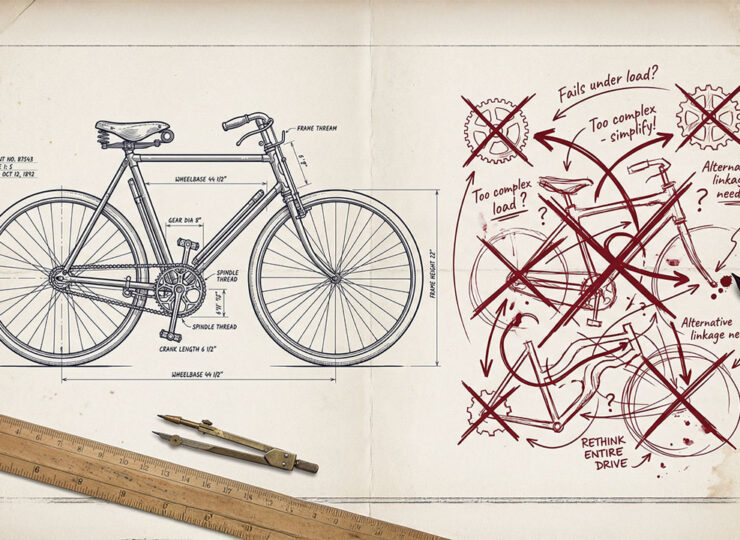 NT NO. 87543
E 1: 5
OCT 12, 1892
FRAME THREAM
WHEELBASE 44 1/2"
GEAR DIA 8"
SPINDLE
THREAD
SPINDLE THREAD
CRANK LENGTH 6 1/2"
WHEELBASE 44 1/2"
FRAME HEIGHT 22"
Fails under load?
Too complex
- simplify!
Too complex
load ?
?
?
Alterna
linkag
need
?
Alternative
linkage ne
?
RETHINK
ENTIRE
DRIVE
4 5 6 7 8 9 10 11 12 13